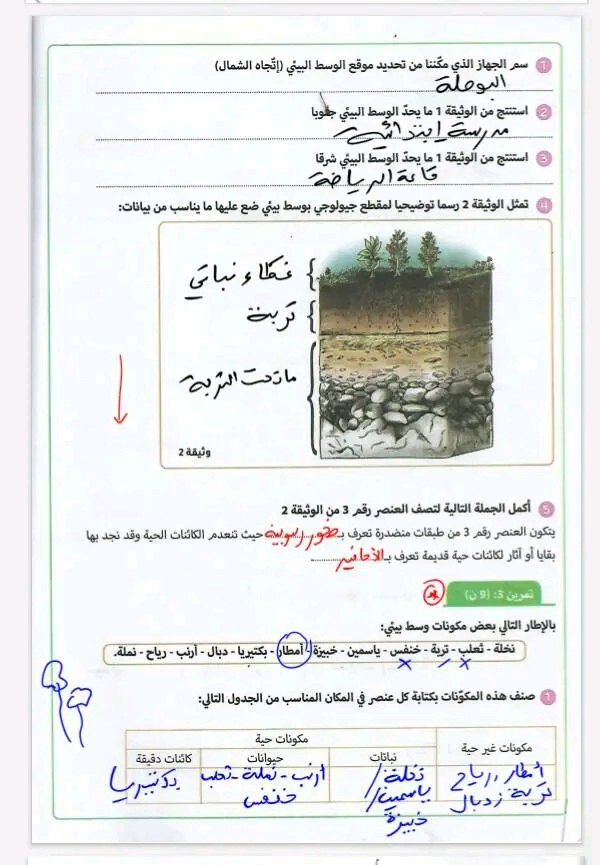 1 سم الجهاز الذي مكّننا من تحديد موقع الوسط البيئي (إتّجاه الشمال)
البوصلة
2 استنتج من الوثيقة 1 ما يحدّ الوسط البيئي جنوبا
مدرسة ابتدائية
3 استنتج من الوثيقة 1 ما يحدّ الوسط البيئي شرقا
قاعة الرياضة
4 تمثل الوثيقة 2 رسما توضيحيا لمقطع جيولوجي بوسط بيئي ضع عليها ما يناسب من بيانات:
غطاء نباتي
تربة
ما تحت التربة
وثيقة 2
5 أكمل الجملة التالية لتصف العنصر رقم 3 من الوثيقة 2
يتكون العنصر رقم 3 من طبقات منضدرة تعرف بـ صخور رسوبية حيث تنعدم الكائنات الحية وقد نجد بها
بقايا أو آثار لكائنات حية قديمة تعرف بـ الأحافير
تمرين 3: (9 ن)
بالإطار التالي بعض مكونات وسط بيئي:
نخلة - ثعلب - تربة - خنفس - ياسمين - خبيزة - أمطار - بكتيريا - دبال - أرنب - رياح - نملة.
1 صنف هذه المكوّنات بكتابة كل عنصر في المكان المناسب من الجدول التالي:
مكونات غير حية مكونات حية
نباتات حيوانات كائنات دقيقة
أمطار، رياح نخلة / أرنب - نملة - ثعلب بكتيريا
تربة، دبال ياسمين / خنفس
خبيزة